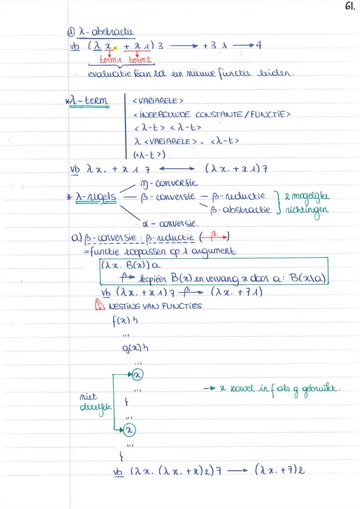 61.
① λ-abstractie
vb (λ x. + x 1) 3 → + 3 1 → 4
term1 term2
evaluatie kan tot een nieuwe functie leiden.
* λ-term
<VARIABELE>
<INGEBOUWDE CONSTANTE/FUNCTIE>
<λ-t> <λ-t>
λ <VARIABELE>. <λ-t>
(<λ-t>)
vb λx. + x 1 7 ↔ (λx. + x 1) 7
* λ-regels
η-conversie
β-conversie
β-reductie
β-abstractie
2 mogelijke richtingen
α-conversie.
a) β-conversie: β-reductie (β→)
= functie toepassen op 1 argument
(λx. B(x)) a
β→ kopieër B(x) en vervang x door a: B(x\a)
NESTING VAN FUNCTIES
f(x) {
...
g(x) {
...
x
→ x zowel in f als g gebruikt.
...
niet dezelfde
}
...
x
...
}
vb (λx. (λx. + x) 2) 7 →